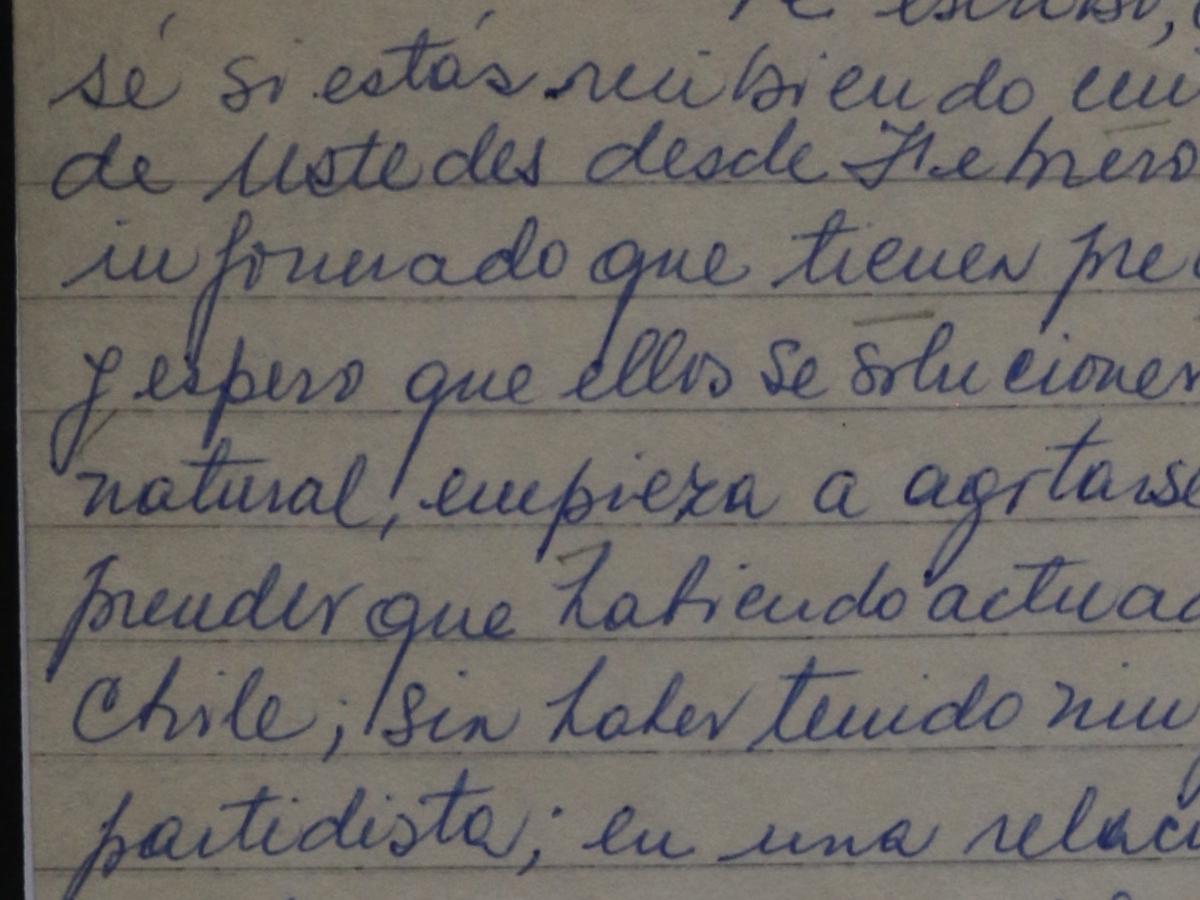 Te escribo,
sé si estás recibiendo
de Ustedes desde Febrero
informado que tienen
y espero que ellos se solucionen
natural, empieza a agitarse
prender que habiendo
Chile; sin haber tenido
partidista; en una